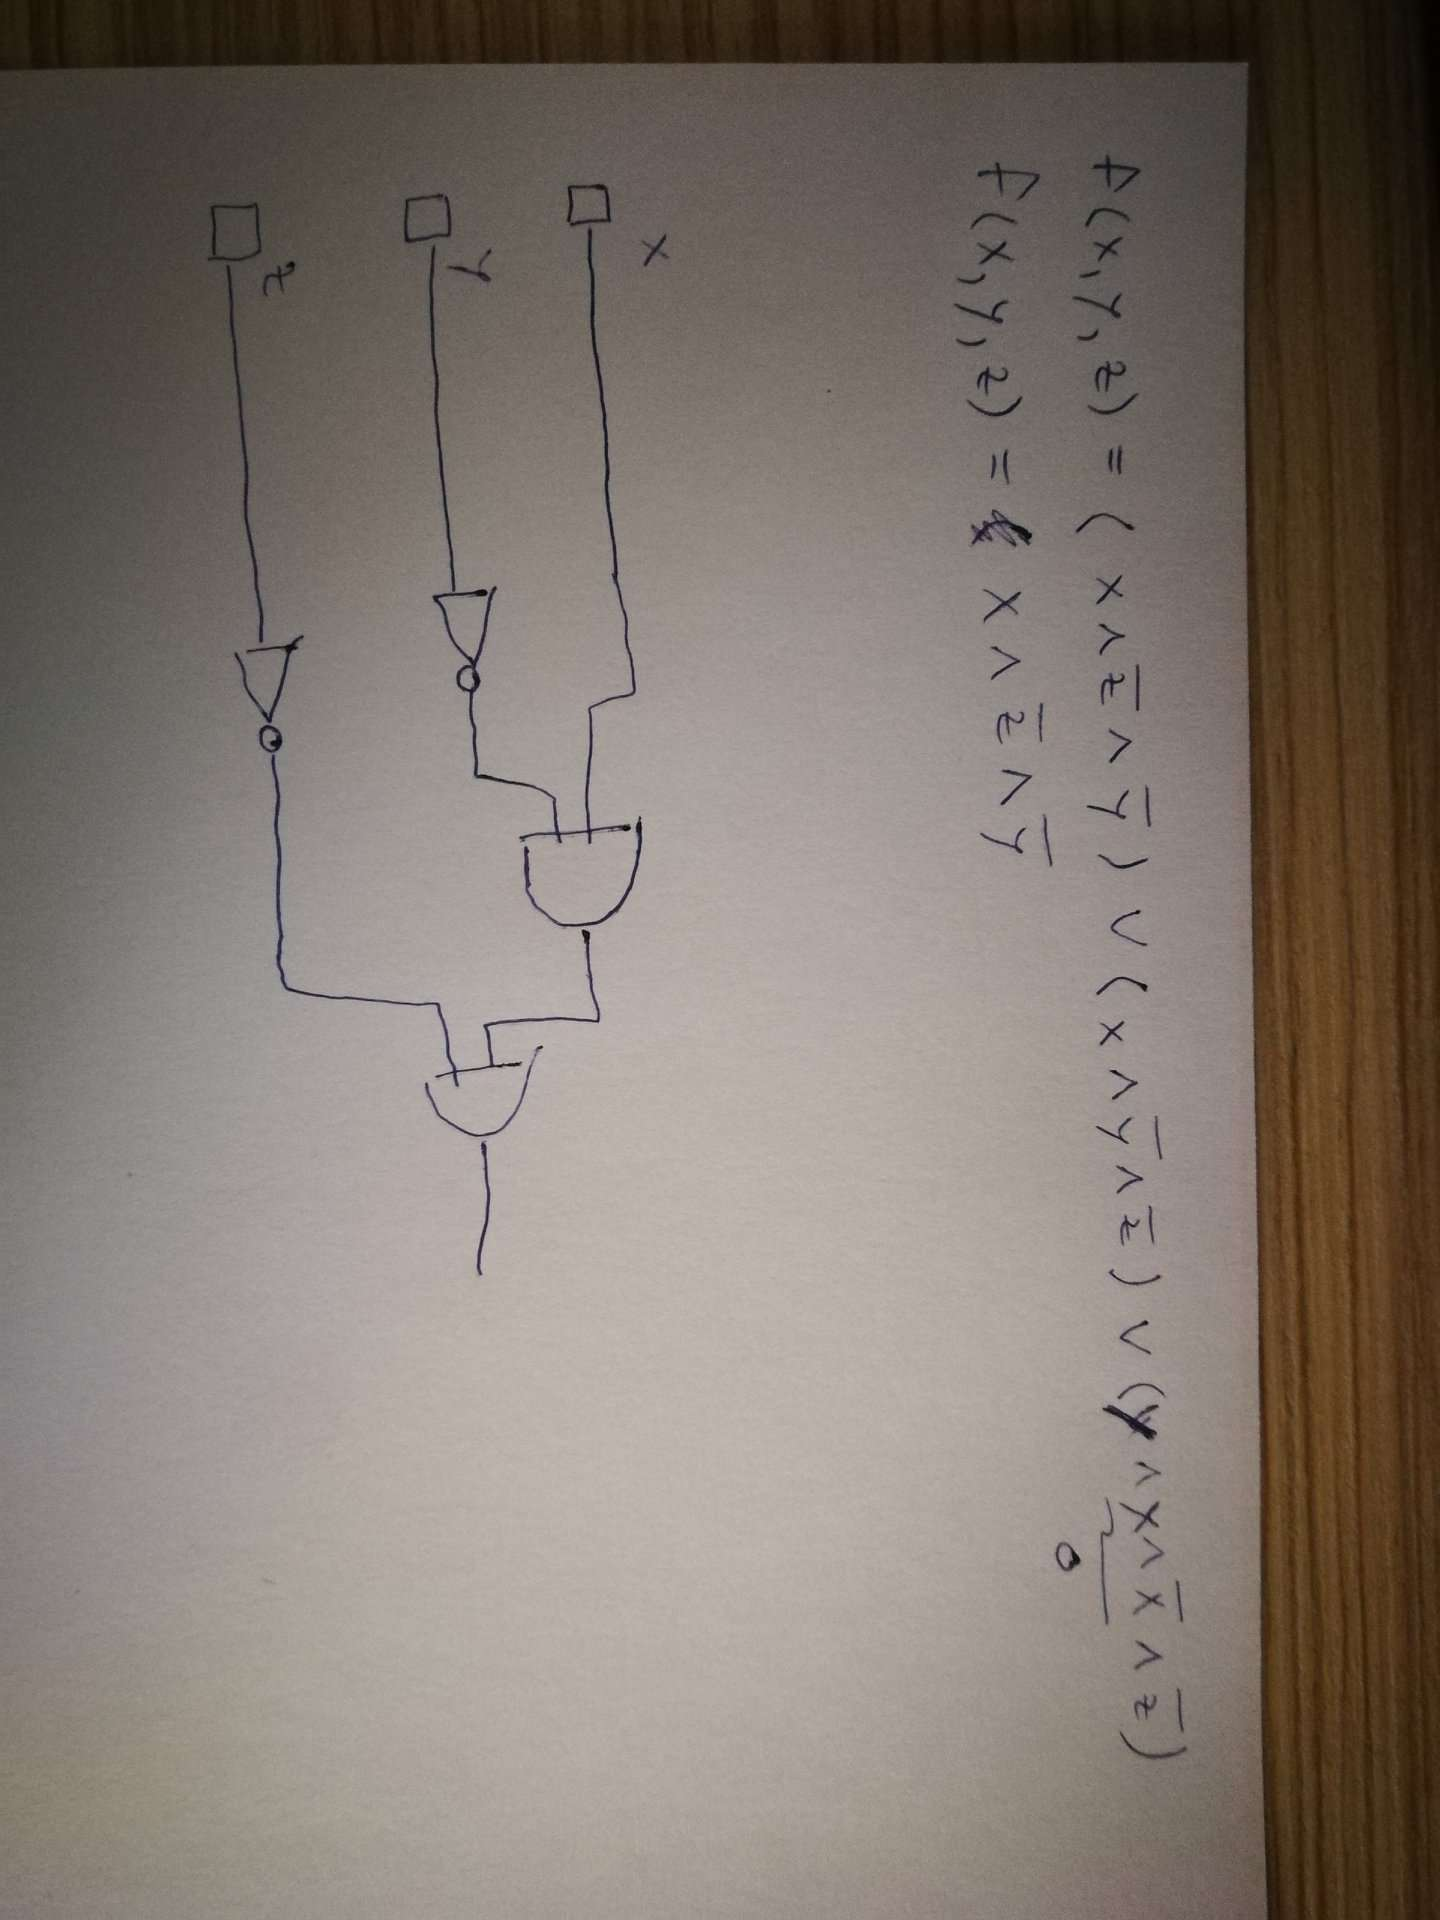 f(x, y, z) = (x ∧ z̅ ∧ y̅) ∨ (x ∧ y̅ ∧ z̅) ∨ (y ∧ x ∧ x̅ ∧ z̅)
0
f(x, y, z) = x ∧ z̅ ∧ y̅
x
y
z